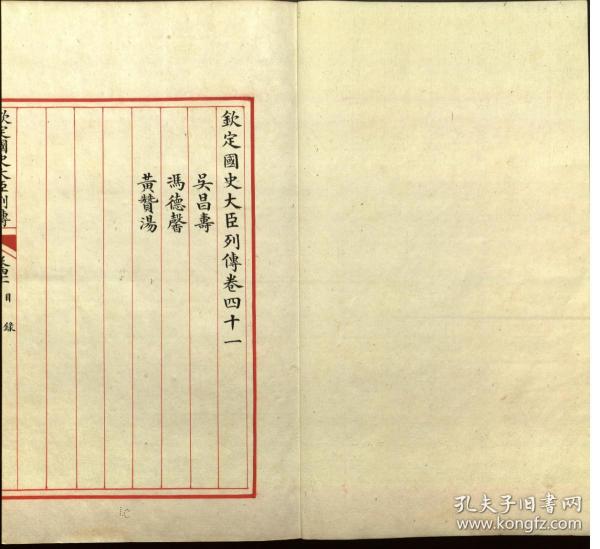 欽定國史大臣列傳卷四十一
吳昌壽
馮德馨
黃贊湯
欽定國史大臣列傳
目錄
孔夫子旧书网
www.kongfz.com